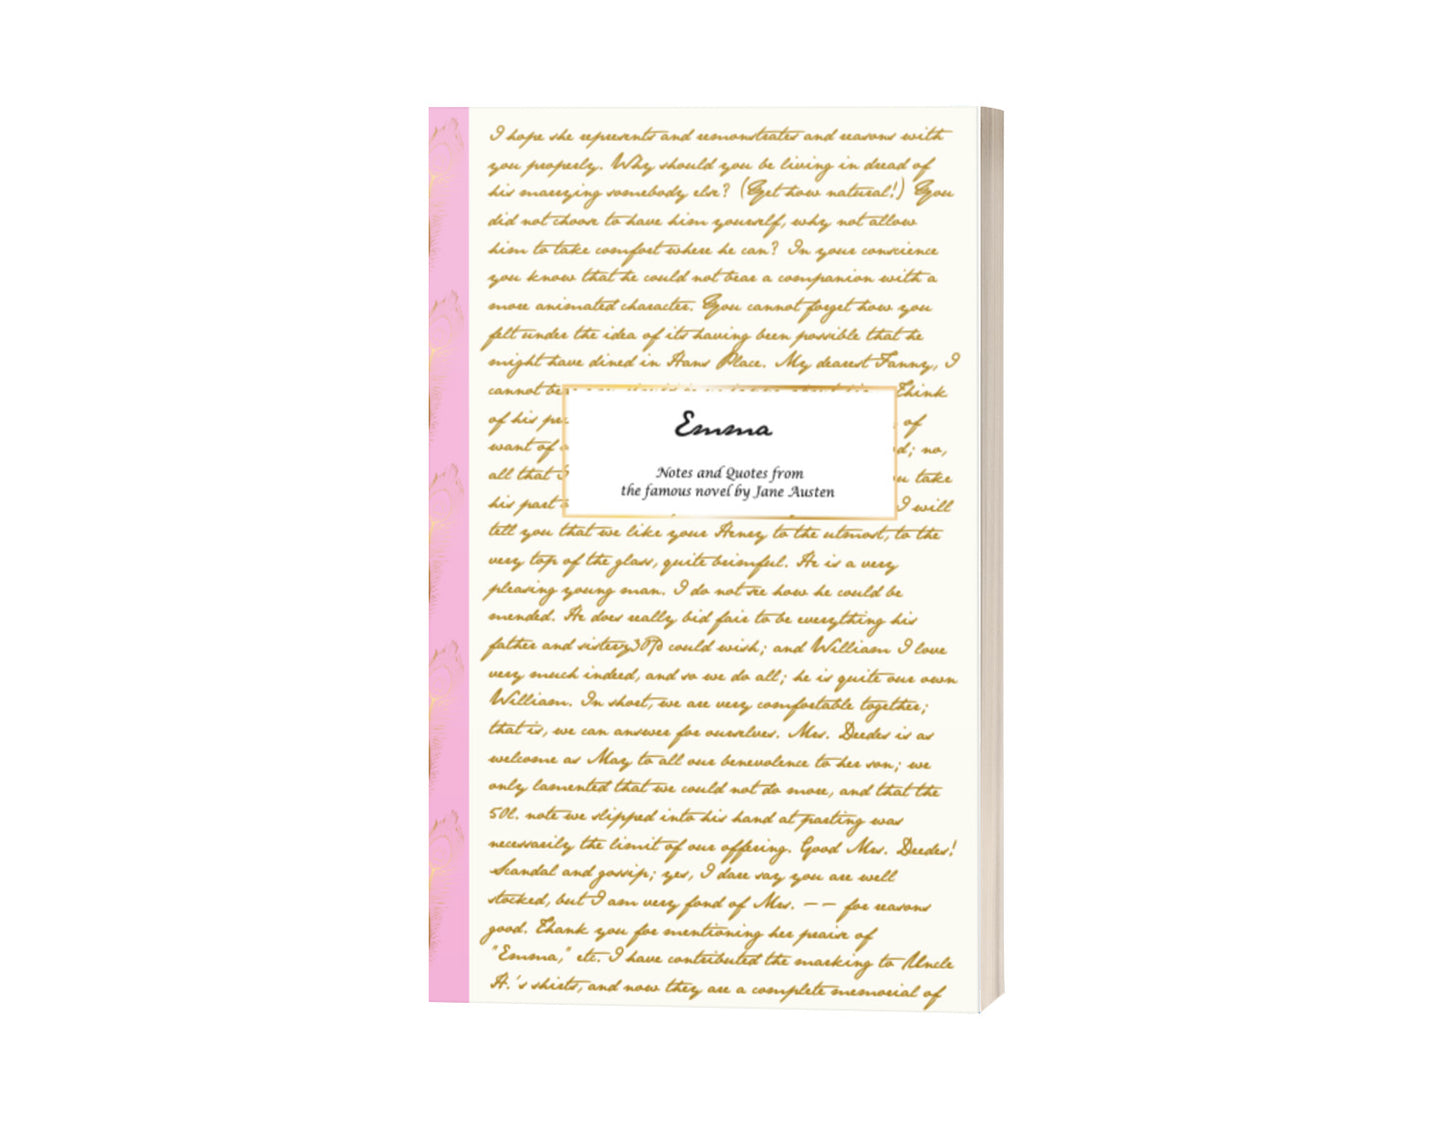 I hope she represents and remonstrates and reasons with
you properly. Why should you be living in dread of
his marrying somebody else? (Yet how natural!) You
did not choose to have him yourself, why not allow
him to take comfort where he can? In your conscience
you know that he could not bear a companion with a
more animated character. You cannot forget how you
felt under the idea of its having been possible that he
might have dined in Hans Place. My dearest Fanny, I
cannot Think
of his of
want of no,
all that take
his part I will
Emma
Notes and Quotes from
the famous novel by Jane Austen
tell you that we like your Henry to the utmost, to the
very top of the glass, quite brimful. He is a very
pleasing young man. I do not see how he could be
mended. He does really bid fair to be everything his
father and sister could wish; and William I love
very much indeed, and so we do all; he is quite our own
William. In short, we are very comfortable together;
that is, we can answer for ourselves. Mrs. Deedes is as
welcome as May to all our benevolence to her son; we
only lamented that we could not do more, and that the
50l. note we slipped into his hand at parting was
necessarily the limit of our offering. Good Mrs. Deedes!
Scandal and gossip; yes, I dare say you are well
stocked, but I am very fond of Mrs. — — for reasons
good. Thank you for mentioning her praise of
"Emma," etc. I have contributed the marking to Uncle
H.'s shirts, and now they are a complete memorial of